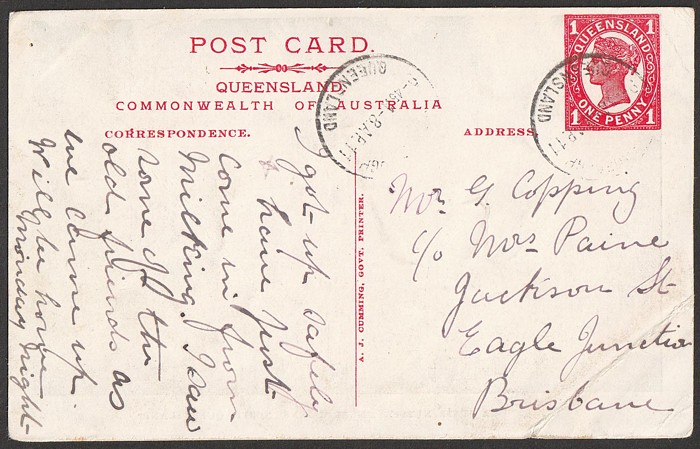 POST CARD.
QUEENSLAND.
COMMONWEALTH OF AUSTRALIA
CORRESPONDENCE.
ADDRESS
QUEENSLAND
1 1
ONE PENNY
QUEENSLAND
8 AP 11
QUEENSLAND
AP 11
I got up safely
have just
come in from
Milking. I saw
some of the
old friends as
we came up.
Will be home
monday night
A. J. CUMMING, GOVT. PRINTER.
Mr G. Copping
c/o Mrs Paine
Jackson St
Eagle Junction
Brisbane